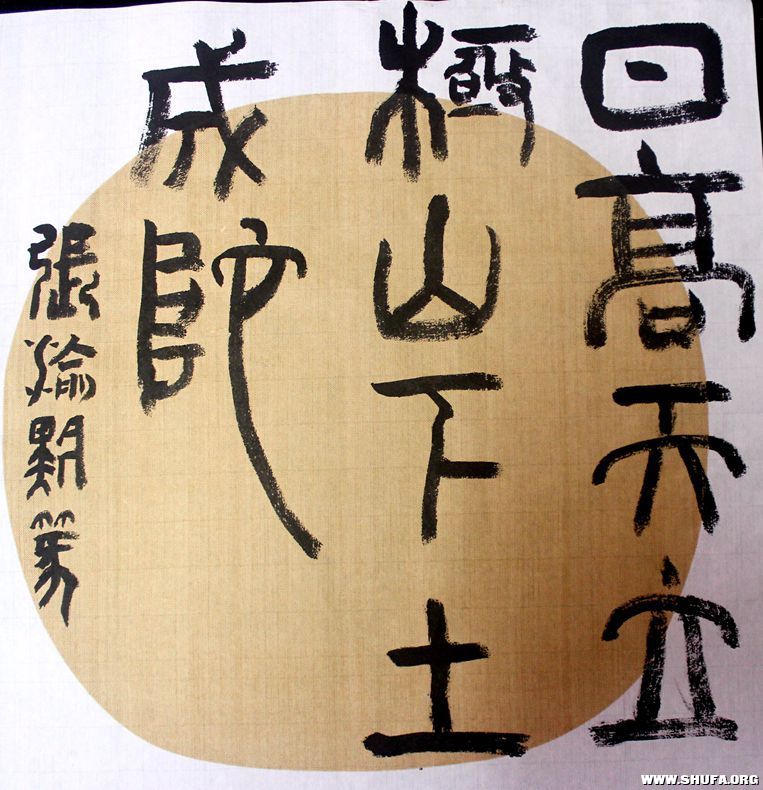 日高天立
極山下土
成師
張
WWW.SHUFA.ORG